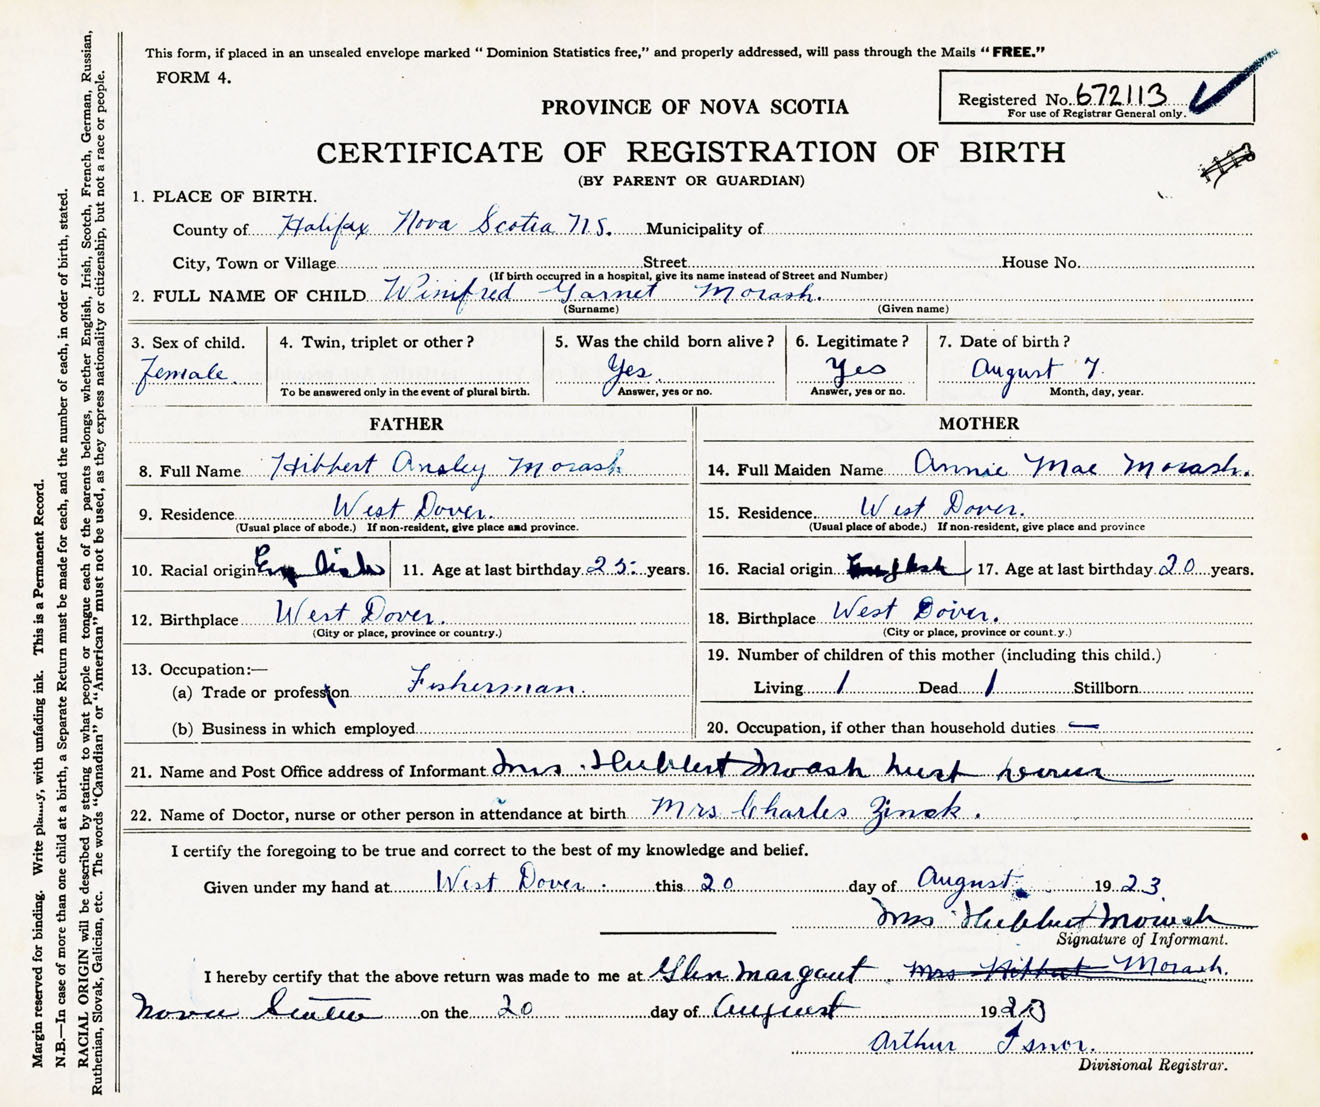 This form, if placed in an unsealed envelope marked “ Dominion Statistics free,” and properly addressed, will pass through the Mails “ FREE.”
FORM 4.
Registered No. 672113
For use of Registrar General only.
PROVINCE OF NOVA SCOTIA
CERTIFICATE OF REGISTRATION OF BIRTH
(BY PARENT OR GUARDIAN)
1. PLACE OF BIRTH.
County of Halifax Nova Scotia N.S. Municipality of
City, Town or Village Street House No.
(If birth occurred in a hospital, give its name instead of Street and Number)
2. FULL NAME OF CHILD Winifred Garnet Morash.
(Surname) (Given name)
3. Sex of child. 4. Twin, triplet or other? 5. Was the child born alive? 6. Legitimate? 7. Date of birth?
Female. Yes. Yes August 7.
To be answered only in the event of plural birth. Answer, yes or no. Answer, yes or no. Month, day, year.
FATHER MOTHER
8. Full Name Hibbert Ansley Morash 14. Full Maiden Name Annie Mae Morash.
9. Residence West Dover. 15. Residence West Dover.
(Usual place of abode.) If non-resident, give place and province. (Usual place of abode.) If non-resident, give place and province
10. Racial origin English 11. Age at last birthday 25 years. 16. Racial origin English 17. Age at last birthday 20 years.
12. Birthplace West Dover. 18. Birthplace West Dover.
(City or place, province or country.) (City or place, province or count.y.)
13. Occupation:— 19. Number of children of this mother (including this child.)
(a) Trade or profession Fisherman. Living 1 Dead 1 Stillborn
(b) Business in which employed 20. Occupation, if other than household duties —
21. Name and Post Office address of Informant Mrs. Hubbert Moash
22. Name of Doctor, nurse or other person in attendance at birth Mrs Charles Zinck.
I certify the foregoing to be true and correct to the best of my knowledge and belief.
Given under my hand at West Dover. this 20 day of August 1923
Mrs Hubbert
Signature of Informant.
I hereby certify that the above return was made to me at Glen Margaut Mrs Hibbert Morash.
Nova Scotia on the 20 day of August 1923
Arthur Isnor.
Divisional Registrar.
Margin reserved for binding. Write plainly, with unfading ink. This is a Permanent Record.
N.B.—In case of more than one child at a birth, a Separate Return must be made for each, and the number of each, in order of birth, stated.
RACIAL ORIGIN will be described by stating to what people or tongue each of the parents belongs, whether English, Irish, Scotch, French, German, Russian,
Ruthenian, Slovak, Galician, etc. The words “Canadian” or “American” must not be used, as they express nationality or citizenship, but not a race or people.